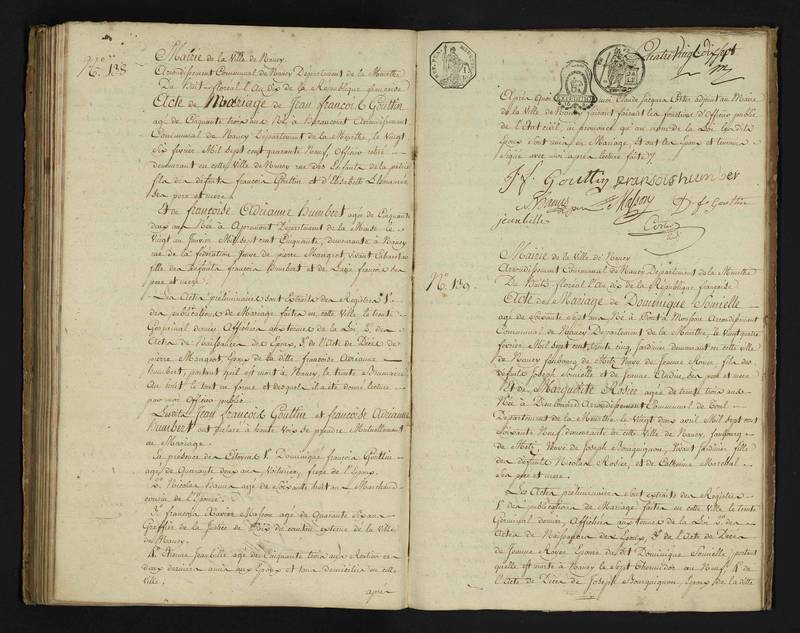 N.º 138
Mairie de la Ville de Nancy
Arrondissement Communal de Nancy Département de la Meurthe
Du huit floréal l'An dix de la République française
Acte de Mariage de Jean françois Gouttin
agé de Cinquante trois ans Né à Arrondissement
Communal de Nancy Département de la Meurthe, le Vingt
Six février Mil Sept cent quarante Neuf, Officier retiré
demeurant en cette Ville de Nancy rue des Enfants de la patrie
fils des défunts françois Gouttin et d'Elisabeth
Ses père et mere.
Et de françoise Adrianne Humbert agée de Cinquante
deux ans Née à Apremont Département de la Meuse le
Vingt un Janvier Mil Sept cent Cinquante, demeurante à Nancy
rue de la fédération Veuve de pierre Mangeot, vivant Cabaretier
fille des Défunts françois Humbert et de françois ses
père et mere.
Les Actes préliminaires sont Extraits des Registres 1.º
des publications de Mariage faites en cette Ville, le trente
Germinal dernier Affichées aux termes de la Loi 2.º des
Actes de Naissances des Epoux, 3.º de l'Acte de Décès de
pierre Mangeot Epoux de la ditte françoise Adrianne
humbert, portant qu'il est mort à Nancy, le trente Brumaire
An huit le tout en forme et desquels il a été donné lecture
par moi Officier public.
Lesdits Jean françois Gouttin et françoise Adrianne
Humbert ont déclaré à haute Voix se prendre Mutuellement
en Mariage.
En présence des Citoyens 1.º Dominique françois Gouttin
agé de Quarante deux ans Voiturier, frere de l'Epoux.
2.º Nicolas agé de Soixante huit ans Marchand
cousin de l'Epouse.
3.º françois Xavier Masson agé de Quarante Six ans
Greffier de la Justice de Paix du canton externe de la Ville
de Nancy.
4. Etienne Jeanbille agé de Cinquante trois ans Rentier ces
deux derniers amis aux Epoux et tous domiciliés en cette
Ville.
après
Quatre Vingt dix sept
Après quoi moi Claude Jacques Coster adjoint au Maire
de la Ville de Nancy faisant les fonctions d'Officier public
de l'Etat civil, ai prononcé qu'au nom de la Loi lesdits
Epoux sont unis en Mariage, et ont les Epoux et temoins
Signé avec moi après lecture faite.
J. F. Gouttin fransois humber
Masson D. f. Gouttin
jeanbille
Coster
N.º 139.
Mairie de la Ville de Nancy
Arrondissement Communal de Nancy Département de la Meurthe
Du Huit floréal l'An dix de la République française
Acte de Mariage de Dominique
agé de Soixante Sept ans Né à Pont à Mousson Arrondissement
Communal de Nancy Département de la Meurthe, le Vingt quatre
février Mil Sept cent trente cinq, Jardinier demeurant en cette Ville
de Nancy faubourg de Metz Veuf de Jeanne Royer fils des
défunts Joseph et de Jeanne ses père et mere
Et de Marguerite Rosier agée de trente trois ans
Née à Arrondissement Communal de Toul
Département de la Meurthe le Vingt deux avril Mil Sept cent
Soixante Neuf demeurante en cette Ville de Nancy, faubourg
de Metz, Veuve de Joseph Bourguignon, Vivant Jardinier fille
des défunts Nicolas Rosier, et de Catherine Marechal
ses père et mere.
Les Actes préliminaires sont extraits des Registres
1.º des publications de Mariage faites en cette Ville le trente
Germinal dernier, Affichées aux termes de la Loi 2.º des
Actes de Naissances des Epoux, 3.º de l'Acte de Décès
de Jeanne Royer Epouse de dit Dominique portant
quelle est morte à Nancy le Sept Thermidor an Neuf 4.º de
l'Acte de Décès de Joseph Bourguignon, Epoux de la ditte